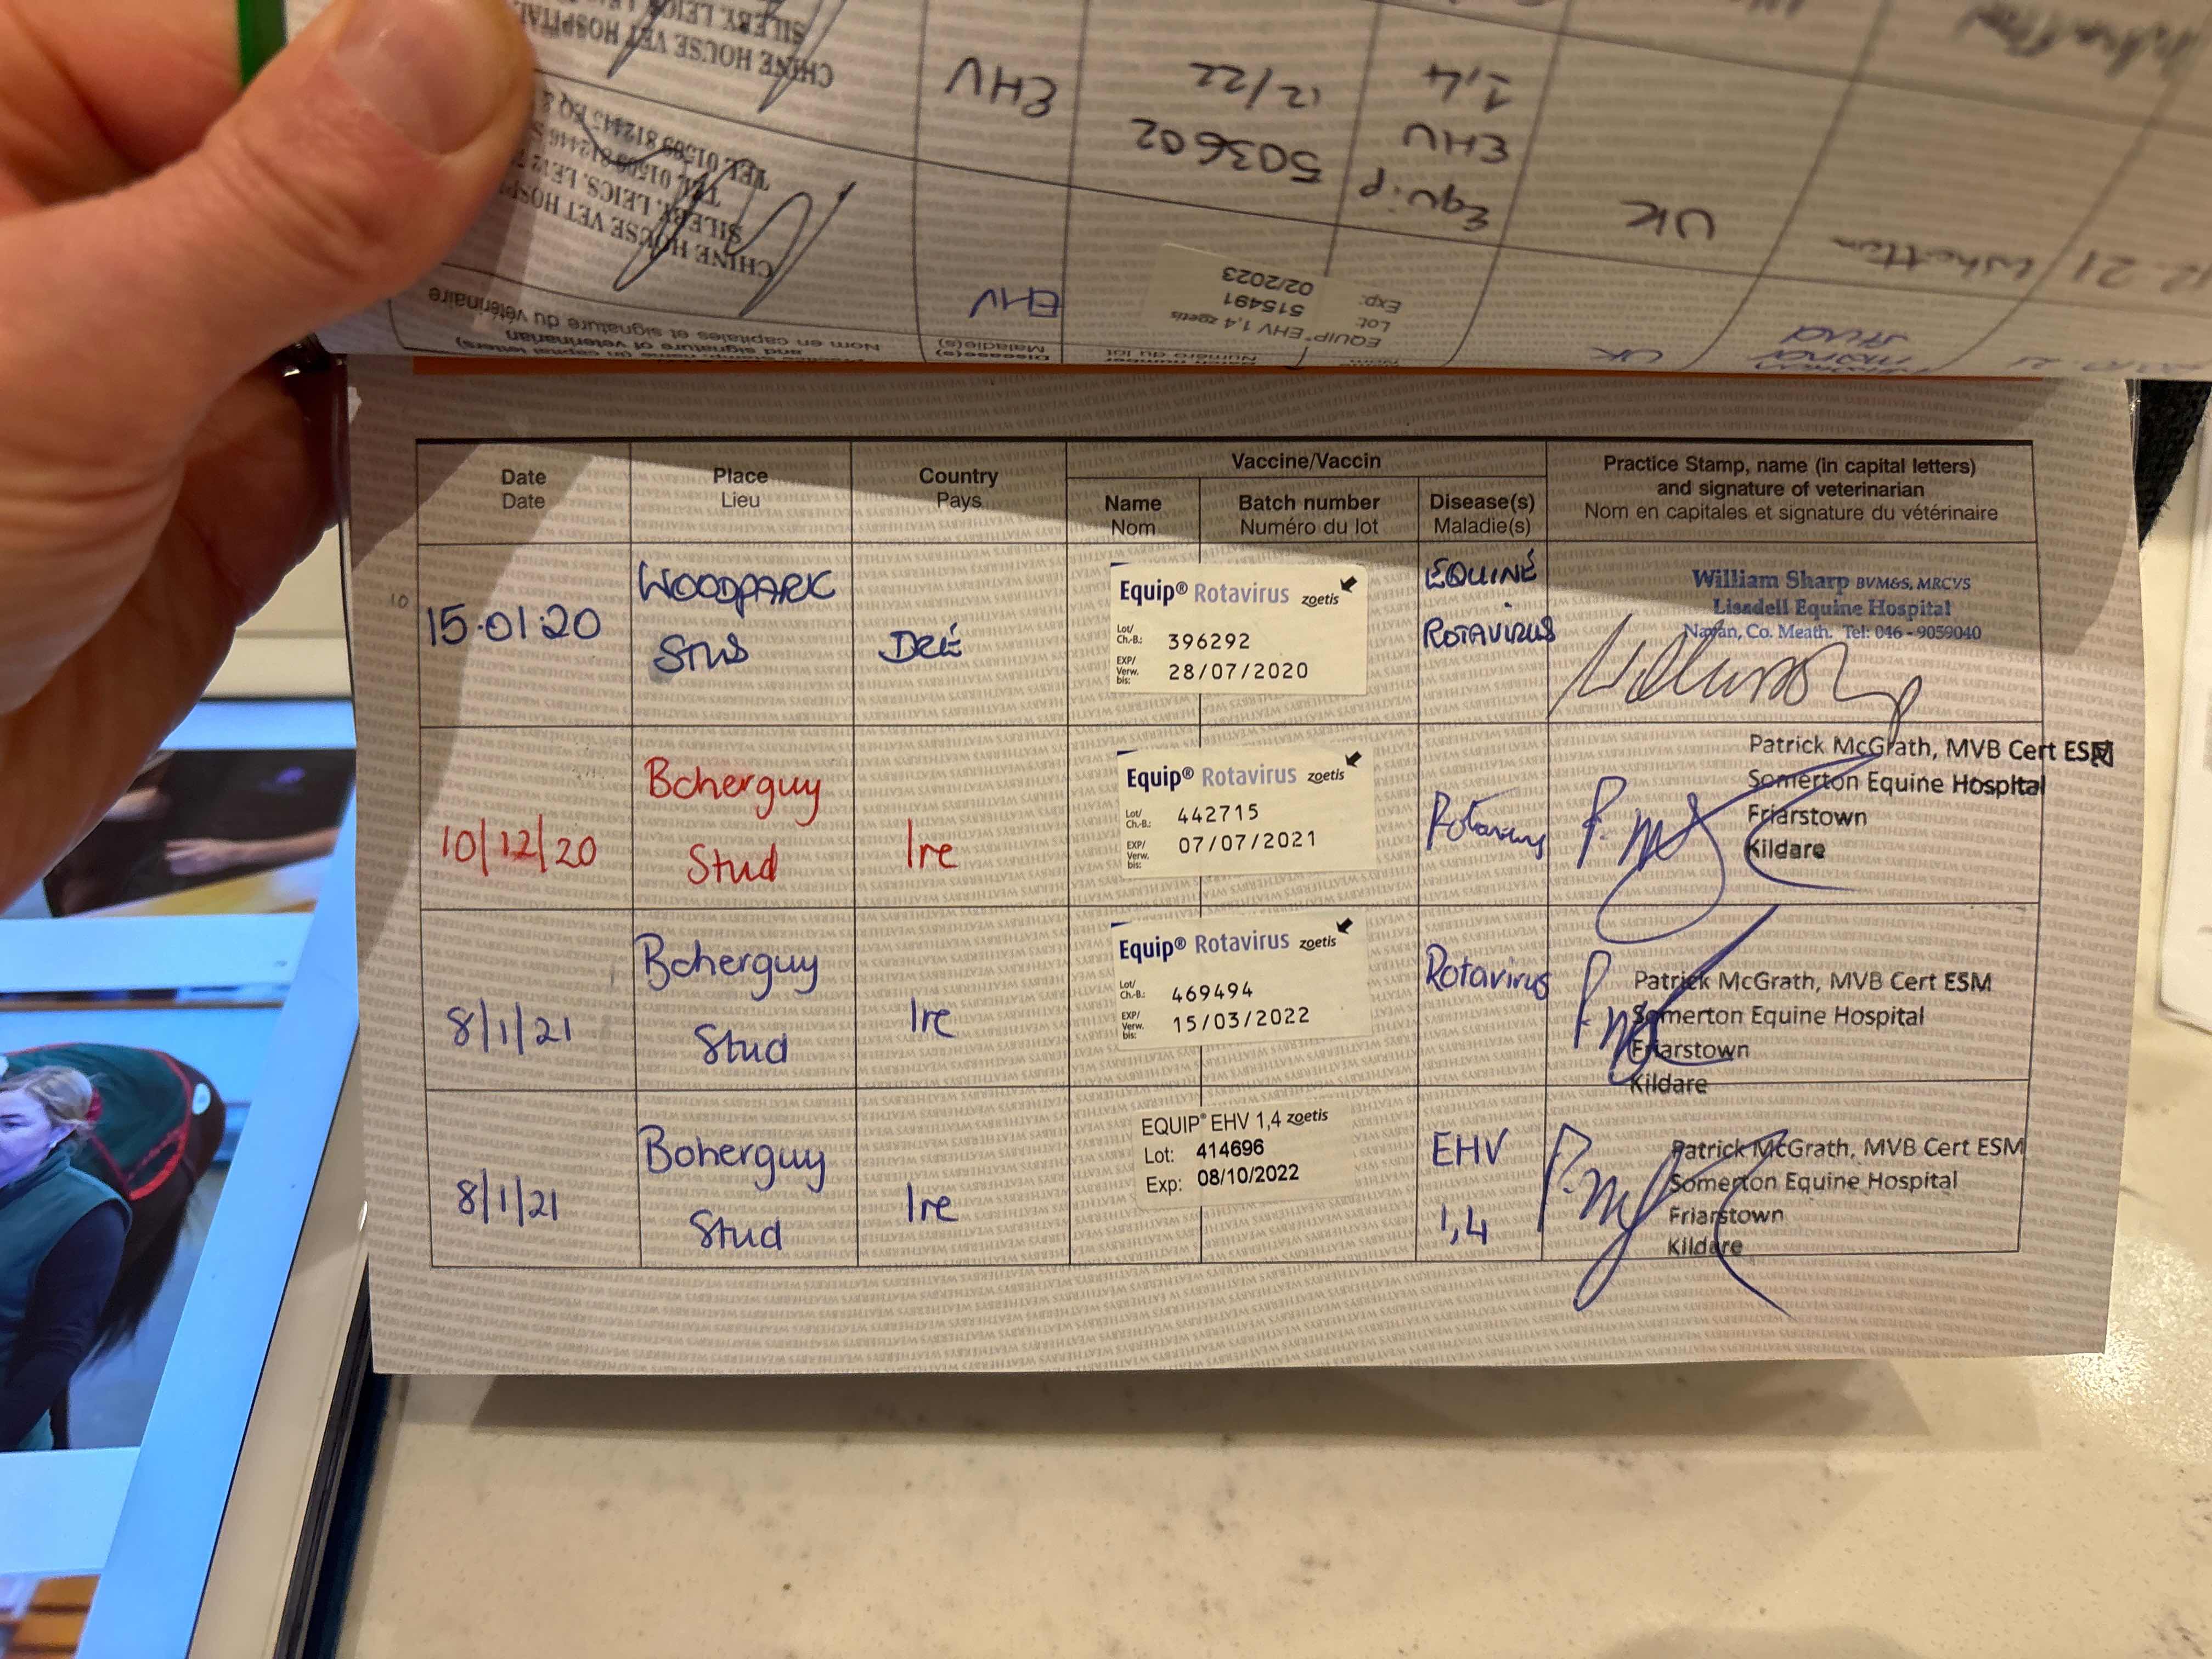 CHINE HOUSE VET HOSPITAL
SILEBY, LEICS.
EHV
12/22
503602
Equip
EHV
1,4
UK
TEL 01509 812445
TEL 01509 812446
SILEBY, LEICS. LE12
CHINE HOUSE VET HOSP
EHV
EQUIP® EHV 1,4 zoetis
Lot: 515491
Exp: 02/2023
UK
stud
and signature of veterinarian
Nom en capitales et signature du vétérinaire
Disease(s)
Maladie(s)
Batch number
Numéro du lot
Date
Date
Place
Lieu
Country
Pays
Vaccine/Vaccin
Name
Nom
Batch number
Numéro du lot
Disease(s)
Maladie(s)
Practice Stamp, name (in capital letters)
and signature of veterinarian
Nom en capitales et signature du vétérinaire
10
15.01.20
WOODPARK
STUD
IRE
Equip® Rotavirus zoetis
Lot/
Ch.-B.: 396292
EXP/
Verw.
bis: 28/07/2020
EQUINE
ROTAVIRUS
William Sharp BVM&S, MRCVS
Lisadell Equine Hospital
Navan, Co. Meath. Tel: 046 - 9059040
10/12/20
Boherguy
Stud
Ire
Equip® Rotavirus zoetis
Lot/
Ch.-B.: 442715
EXP/
Verw.
bis: 07/07/2021
Rotavirus
Patrick McGrath, MVB Cert ESM
Somerton Equine Hospital
Friarstown
Kildare
8/1/21
Boherguy
Stud
Ire
Equip® Rotavirus zoetis
Lot/
Ch.-B.: 469494
EXP/
Verw.
bis: 15/03/2022
Rotavirus
Patrick McGrath, MVB Cert ESM
Somerton Equine Hospital
Friarstown
Kildare
8/1/21
Boherguy
Stud
Ire
EQUIP® EHV 1,4 zoetis
Lot: 414696
Exp: 08/10/2022
EHV
1,4
Patrick McGrath, MVB Cert ESM
Somerton Equine Hospital
Friarstown
Kildare